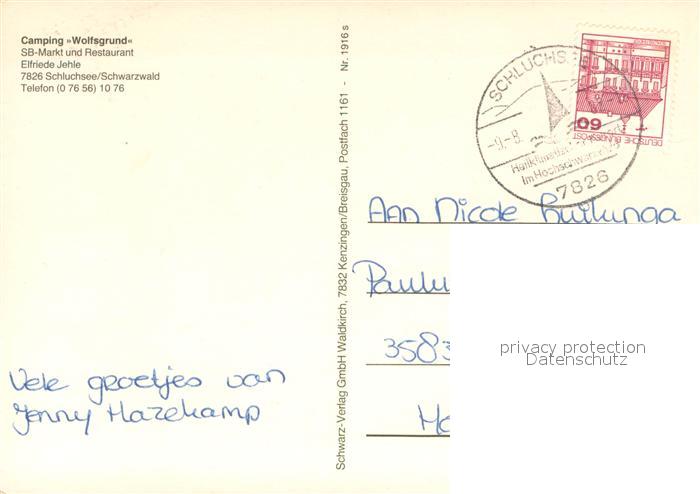 Camping »Wolfsgrund«
SB-Markt und Restaurant
Elfriede Jehle
7826 Schluchsee/Schwarzwald
Telefon (0 76 56) 10 76
Vele groetjes van
Jenny Hazekamp
Schwarz-Verlag GmbH Waldkirch, 7832 Kenzingen/Breisgau, Postfach 1161 - Nr. 1916 s
SCHLUCHS
-9.-8.
Im Hochschwarz
7826
60
DEUTSCHE BUNDESPOST
Aan Nicole
Paulu
3583
privacy protection
Datenschutz